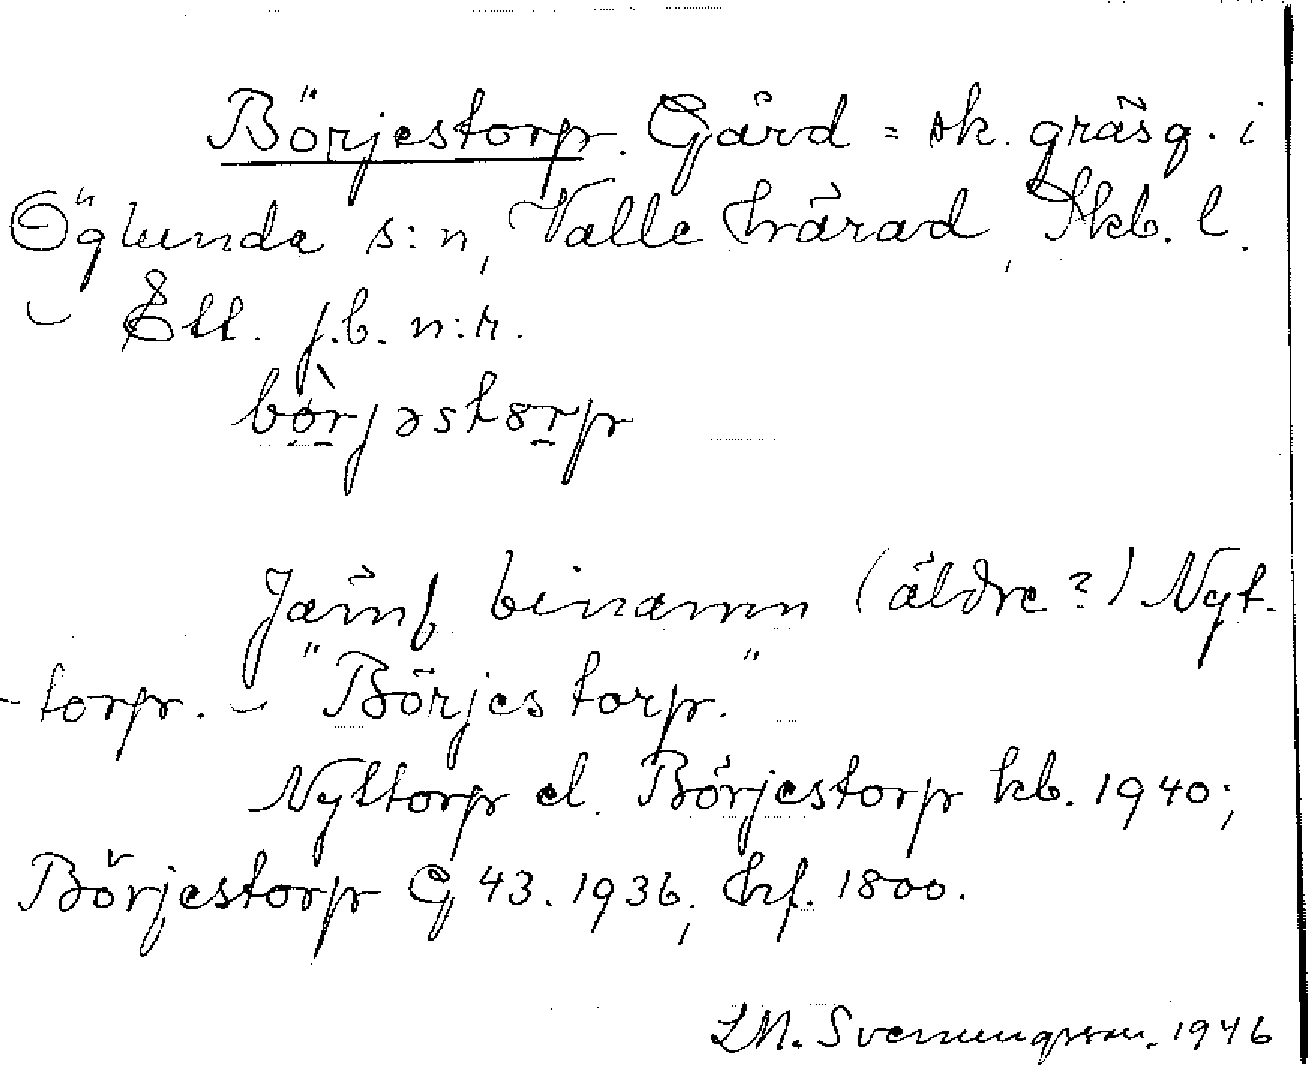 Börjestorp. Gård = sk. gräsg. i
Öglunda s:n, Valle härad, Skb. l.
– Ell. j.b. n:r.
bòrjəstorp
Jämf binamn (äldre?) Nyt-
-torp. – "Börjestorp."
Nyttorp el. Börjestorp kb. 1940;
Börjestorp G 43. 1936; hf. 1800.
LM. Svenungsson. 1946